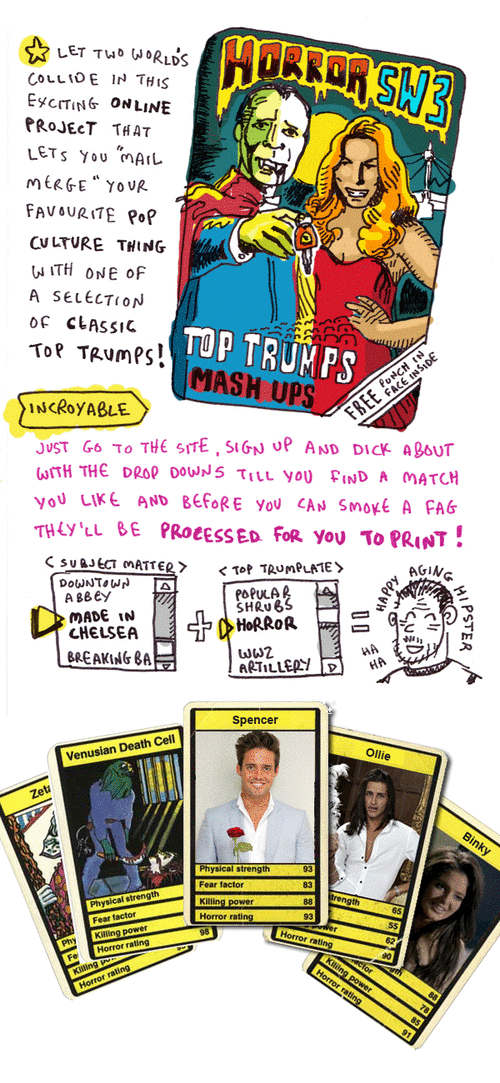 LET TWO WORLDS
COLLIDE IN THIS
EXCITING ONLINE
PROJECT THAT
LETS YOU "MAIL
MERGE" YOUR
FAVOURITE POP
CULTURE THING
WITH ONE OF
A SELECTION
OF CLASSIC
TOP TRUMPS!
HORROR SW3
TOP TRUMPS
MASH UPS
FREE PUNCH IN
FACE INSIDE
INCROYABLE
JUST GO TO THE SITE, SIGN UP AND DICK ABOUT
WITH THE DROP DOWNS TILL YOU FIND A MATCH
YOU LIKE AND BEFORE YOU CAN SMOKE A FAG
THEY'LL BE PROCESSED FOR YOU TO PRINT!
<SUBJECT MATTER>
DOWNTOWN
ABBEY
MADE IN
CHELSEA
BREAKING BA
+
<TOP TRUMPLATE>
POPULAR
SHRUBS
HORROR
WW2
ARTILLERY
=
HAPPY AGING HIPSTER
HA
HA
Zeta
Phy
Fe
Killing po
Horror rating
Venusian Death Cell
Physical strength
Fear factor
Killing power 98
Horror rating
Spencer
Physical strength 93
Fear factor 83
Killing power 88
Horror rating 93
Ollie
trength 65
55
wer 62
Horror rating 90
Binky
th 88
ctor 78
Killing power 85
Horror rating 91